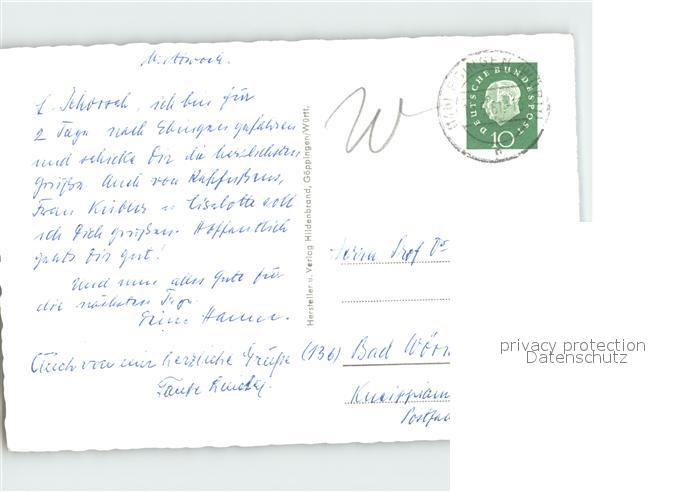 Mittwoch.
L. Schorsch, ich bin für
2 Tage nach Ebingen gefahren
und schicke Dir die herzlichsten
Grüße. Auch von
Frau u. Liselotte soll
ich Dich grüßen. Hoffentlich
geht's Dir gut!
Und nun alles Gute für
die nächsten Tage.
Deine Hanne.
Auch von mir herzliche Grüße
Tante
Hersteller u. Verlag Hildenbrand, Göppingen/Württ.
W
DEUTSCHE BUNDESPOST
10
Herrn Prof Dr
(13b) Bad Wöris
Kneippian
Postfa
privacy protection
Datenschutz